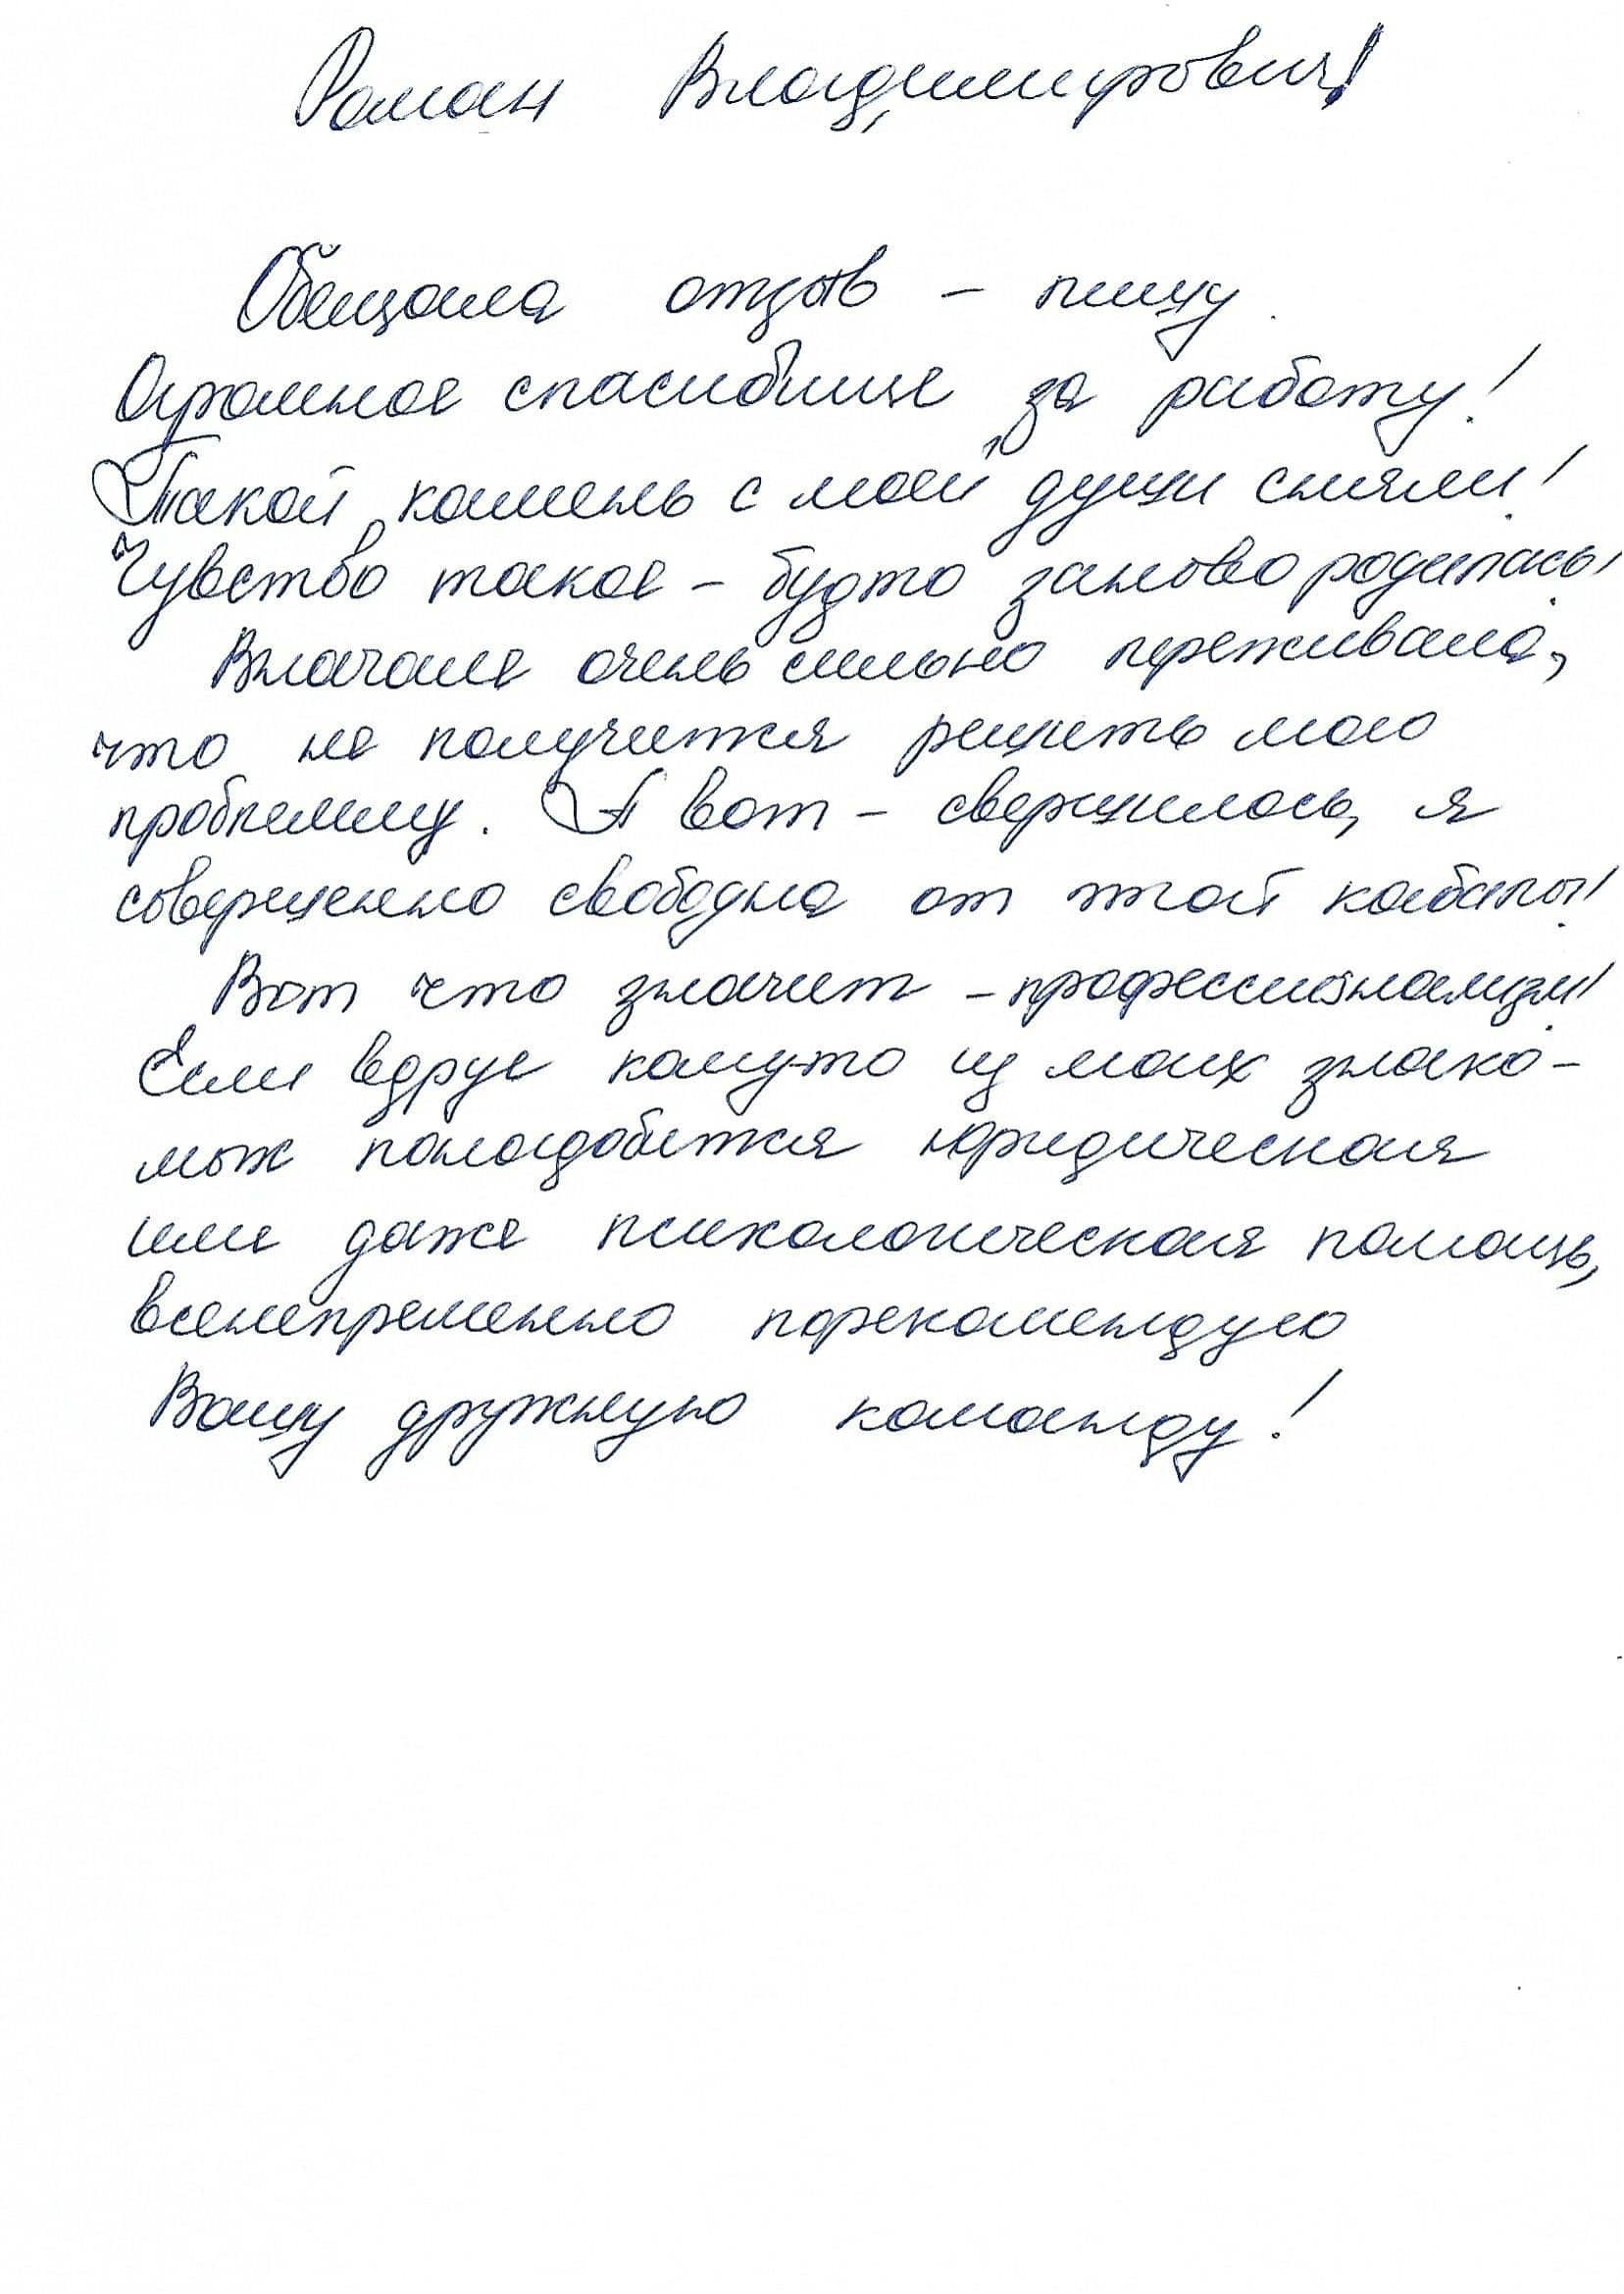 Роман Владимирович!
Обещала отзыв – пишу.
Огромное спасибище за работу!
Такой камень с моей души сняли!
Чувство такое – будто заново родилась!
Вначале очень сильно переживала,
что не получится решить мою
проблемму. А вот – свершилось, я
совершенно свободна от этой кабалы!
Вот что значит – профессионализм!
Если вдруг кому-то из моих знако-
мых понадобится юридическая
или даже психологическая помощь,
всенепременно порекомендую
Вашу дружную команду!